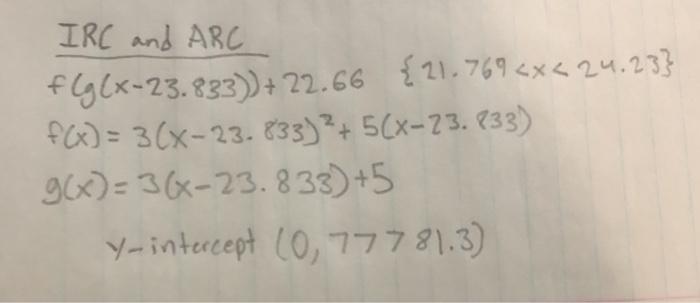 IRC and ARC
f(g(x-23.833))+22.66 {21.769<x<24.23}
f(x)=3(x-23.833)²+5(x-23.833)
g(x)=3(x-23.833)+5
y-intercept (0,77781.3)